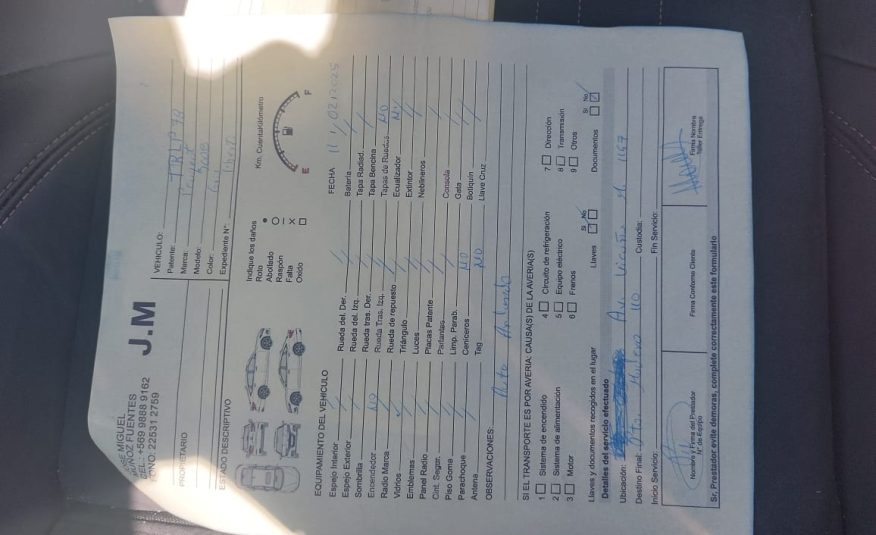 JOSE MIGUEL
MUÑOZ FUENTES
CEL: +569 9888 9162
FONO: 22531 2759
J.M
PROPIETARIO
VEHICULO:
Patente: TRLP 79
Marca:
Modelo: 3008
Color:
Expediente N°:
ESTADO DESCRIPTIVO
Indique los daños
Roto
Abollado
Raspón
Falta
Oxido
Km. Cuentakilómetro
E F
EQUIPAMIENTO DEL VEHICULO
FECHA 11 / 02 / 2025
Espejo Interior Rueda del. Der. Batería
Espejo Exterior Rueda del. Izq. Tapa Radiad.
Sombrilla Rueda tras. Der. Tapa Bencina
Encendedor NO Rueda Tras. Izq. Tapas de Ruedas NO
Radio Marca Rueda de repuesto Ecualizador
Vidrios Triángulo Extintor
Emblemas Luces Neblineros
Panel Radio Placas Patente
Cint. Segsr. Parlantes Consola
Piso Goma Limp. Parab. Gata
Parachoque Ceniceros NO Botiquín
Antena Tag NO Llave Cruz
OBSERVACIONES: Auto
SI EL TRANSPORTE ES POR AVERIA: CAUSA(S) DE LA AVERIA(S)
1 Sistema de encendido 4 Circuito de refrigeración 7 Dirección
2 Sistema de alimentación 5 Equipo eléctrico 8 Transmisión
3 Motor 6 Frenos 9 Otros
Llaves y documentos recogidos en el lugar Llaves Si No Documentos Si No
Detalles del servicio efectuado
Ubicación: Av. Vicuña M. 1167
Destino Final: 110 Custodia:
Inicio Servicio: Fin Servicio:
Nombre y Firma del Prestador
N° de Equipo
Firma Conforme Cliente
Firma Nombre
Taller Entrega
Sr. Prestador evite demoras, complete correctamente este formulario